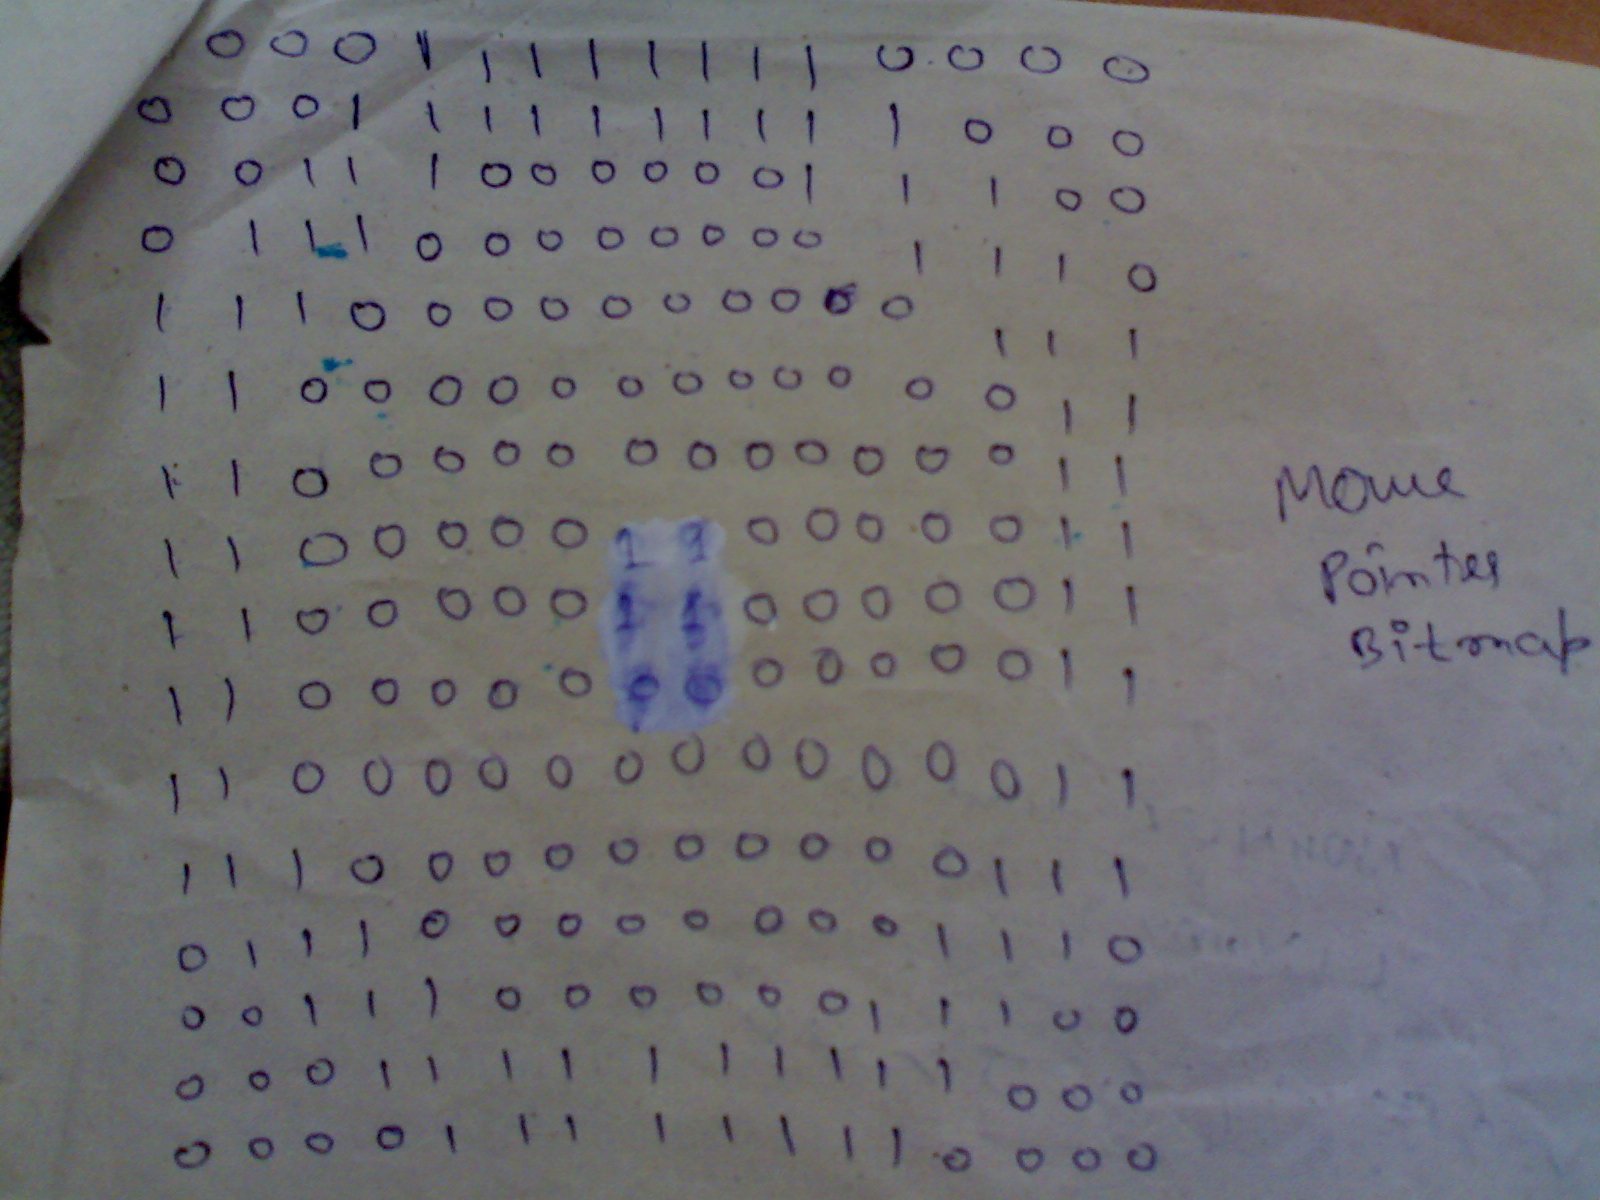 0 0 0 1 1 1 1 1 1 1 1 0 0 0 0
0 0 0 1 1 1 1 1 1 1 1 1 1 0 0 0
0 0 1 1 1 0 0 0 0 0 0 1 1 1 0 0
0 1 1 1 0 0 0 0 0 0 0 0 1 1 1 0
1 1 1 0 0 0 0 0 0 0 0 0 0 1 1 1
1 1 0 0 0 0 0 0 0 0 0 0 0 0 1 1
1 1 0 0 0 0 0 0 0 0 0 0 0 0 1 1
1 1 0 0 0 0 0 1 1 0 0 0 0 0 1 1
1 1 0 0 0 0 0 1 1 0 0 0 0 0 1 1
1 1 0 0 0 0 0 0 0 0 0 0 0 0 1 1
1 1 0 0 0 0 0 0 0 0 0 0 0 0 1 1
1 1 1 0 0 0 0 0 0 0 0 0 0 1 1 1
0 1 1 1 0 0 0 0 0 0 0 0 1 1 1 0
0 0 1 1 1 0 0 0 0 0 0 1 1 1 0 0
0 0 0 1 1 1 1 1 1 1 1 1 1 0 0 0
0 0 0 0 1 1 1 1 1 1 1 1 0 0 0 0
Mouse
Pointer
Bitmap